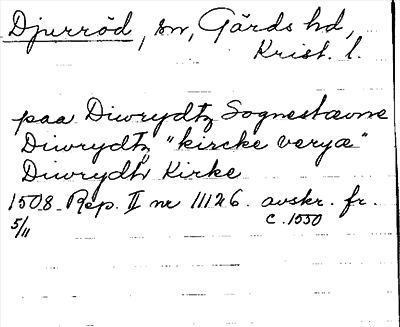 Djurröd, sn, Gärds hd,
Krist. l.
paa Diwrydtz Sognestævne
Diwrydtz "kircke veryæ"
Diwrydtz Kirke
1508 Rep. II nr 11126. avskr. fr.
5/11 c. 1550